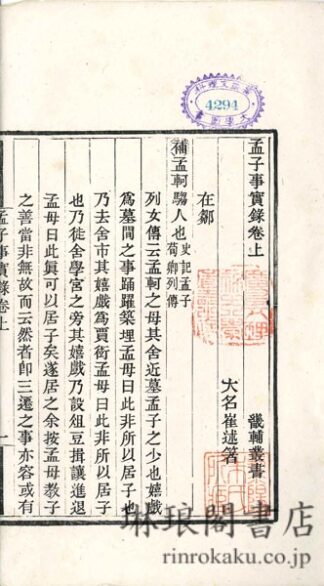 孟子事實錄卷上
畿輔叢書
大名崔述箸
在鄒
補孟軻騶人也史記孟子荀卿列傳
列女傳云孟軻之母其舍近墓孟子之少也嬉戲
爲墓間之事踊躍築埋孟母曰此非所以居子也
乃去舍市其嬉戲爲賈衒孟母曰此非所以居子
也乃徙舍學宮之旁其嬉戲乃設俎豆揖讓進退
孟母曰此眞可以居子矣遂居之余按孟母敎子
之善當非無故而云然者卽三遷之事亦容或有
孟子事實錄卷上
一
4294
琳琅閣書店
rinrokaku.co.jp